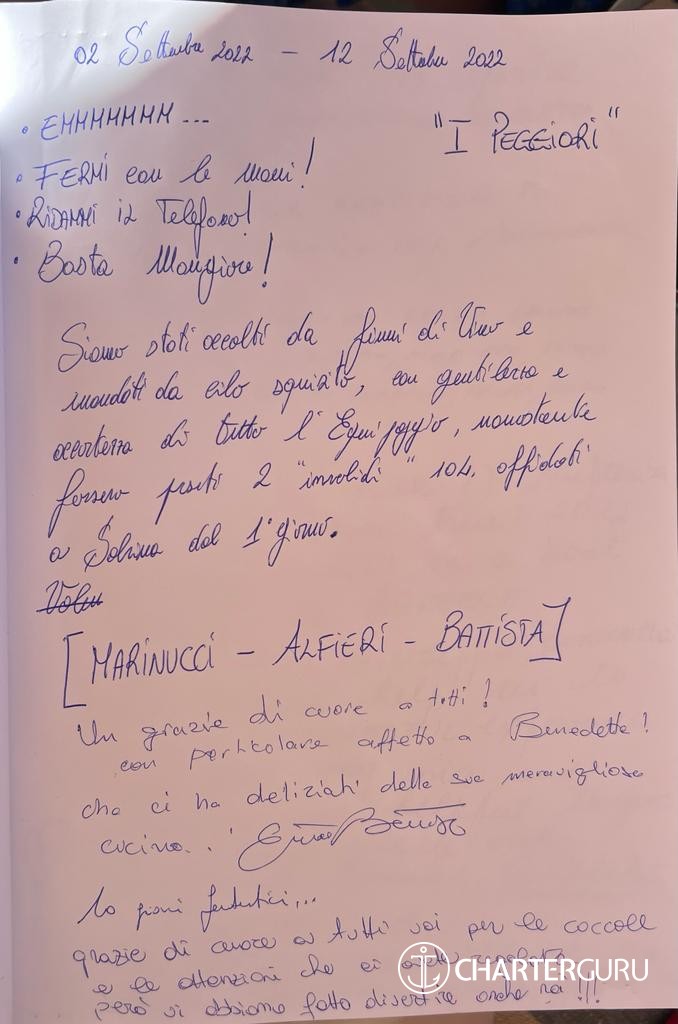 02 Settembre 2022 - 12 Settembre 2022
• EHHHHHHH...
"I PEGGIORI"
• FERMI con le mani!
• RIDAMMI il Telefono!
• Basta Mangiare!
Siamo stati accolti da fiumi di Vino e
inondati da cibo squisito, con gentilezza e
accortezza di tutto l'Equipaggio, nonostante
fossero presenti 2 "invalidi" 104. affidati
a Sabrina dal 1° giorno.
[MARINUCCI - ALFIERI - BATTISTA]
Un grazie di cuore a tutti!
con particolare affetto a Benedetta!
che ci ha deliziati delle sue meravigliose
cucina..
10 giorni fantastici...
grazie di cuore a tutti voi per le coccole
e le attenzioni che ci avete
però vi abbiamo fatto divertire anche noi!!!
CHARTERGURU